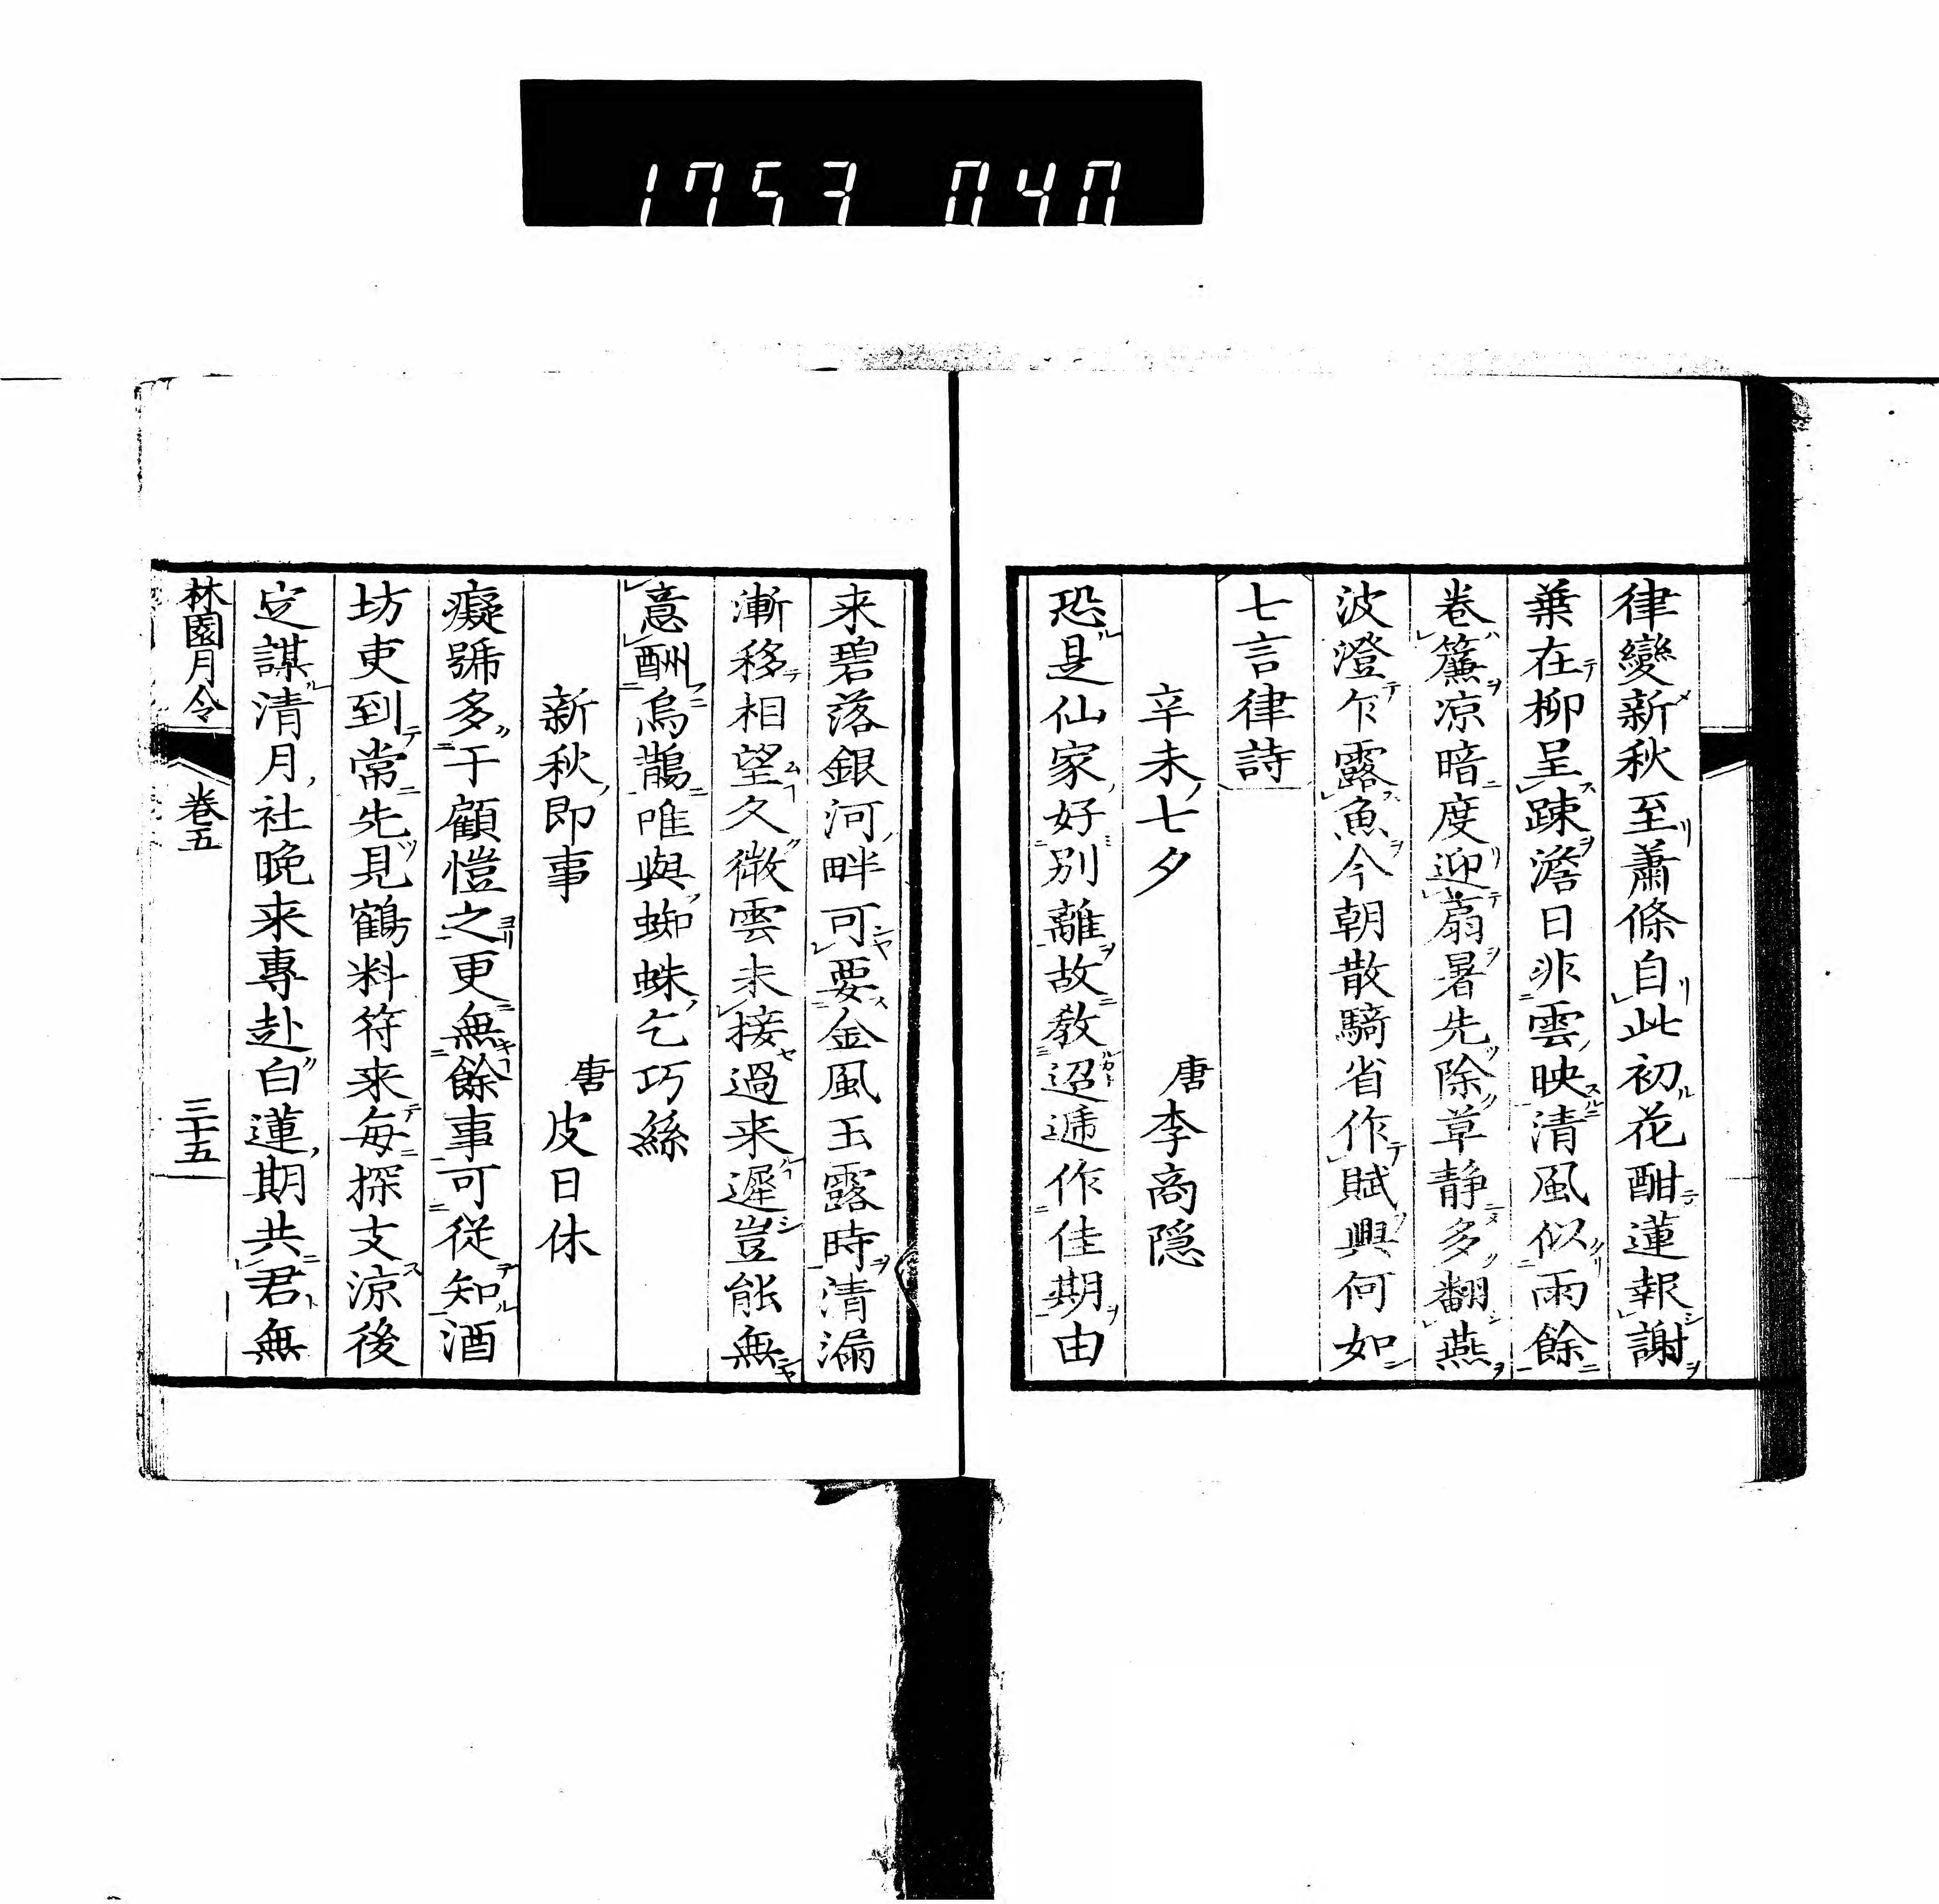 1753 040
律變新秋至蕭條自此初花酣蓮報謝
葉在柳呈踈澹日非雲映清風似雨餘
卷簾凉暗度迎扇暑先除草静多翻燕
波澄乍露魚今朝散騎省作賦興何如
七言律詩
辛未七夕 唐李商隠
恐是仙家好別離故教迢遞作佳期由
来碧落銀河畔可要金風玉露時清漏
漸移相望久微雲未接過来遲豈能無
意酬烏鵲唯與蜘蛛乞巧絲
新秋即事 唐皮日休
癡號多于顧愷之更無餘事可從知酒
坊吏到常先見鶴料符来毎探支涼後
定謀清月社晩来專赴白蓮期共君無
林園月令 卷五 三十五